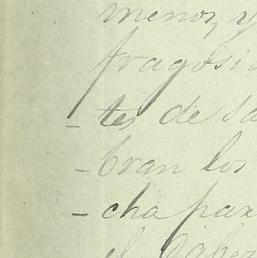 menor, y
fragosi
- tes de sa
- bran los
- cha par
el Saber